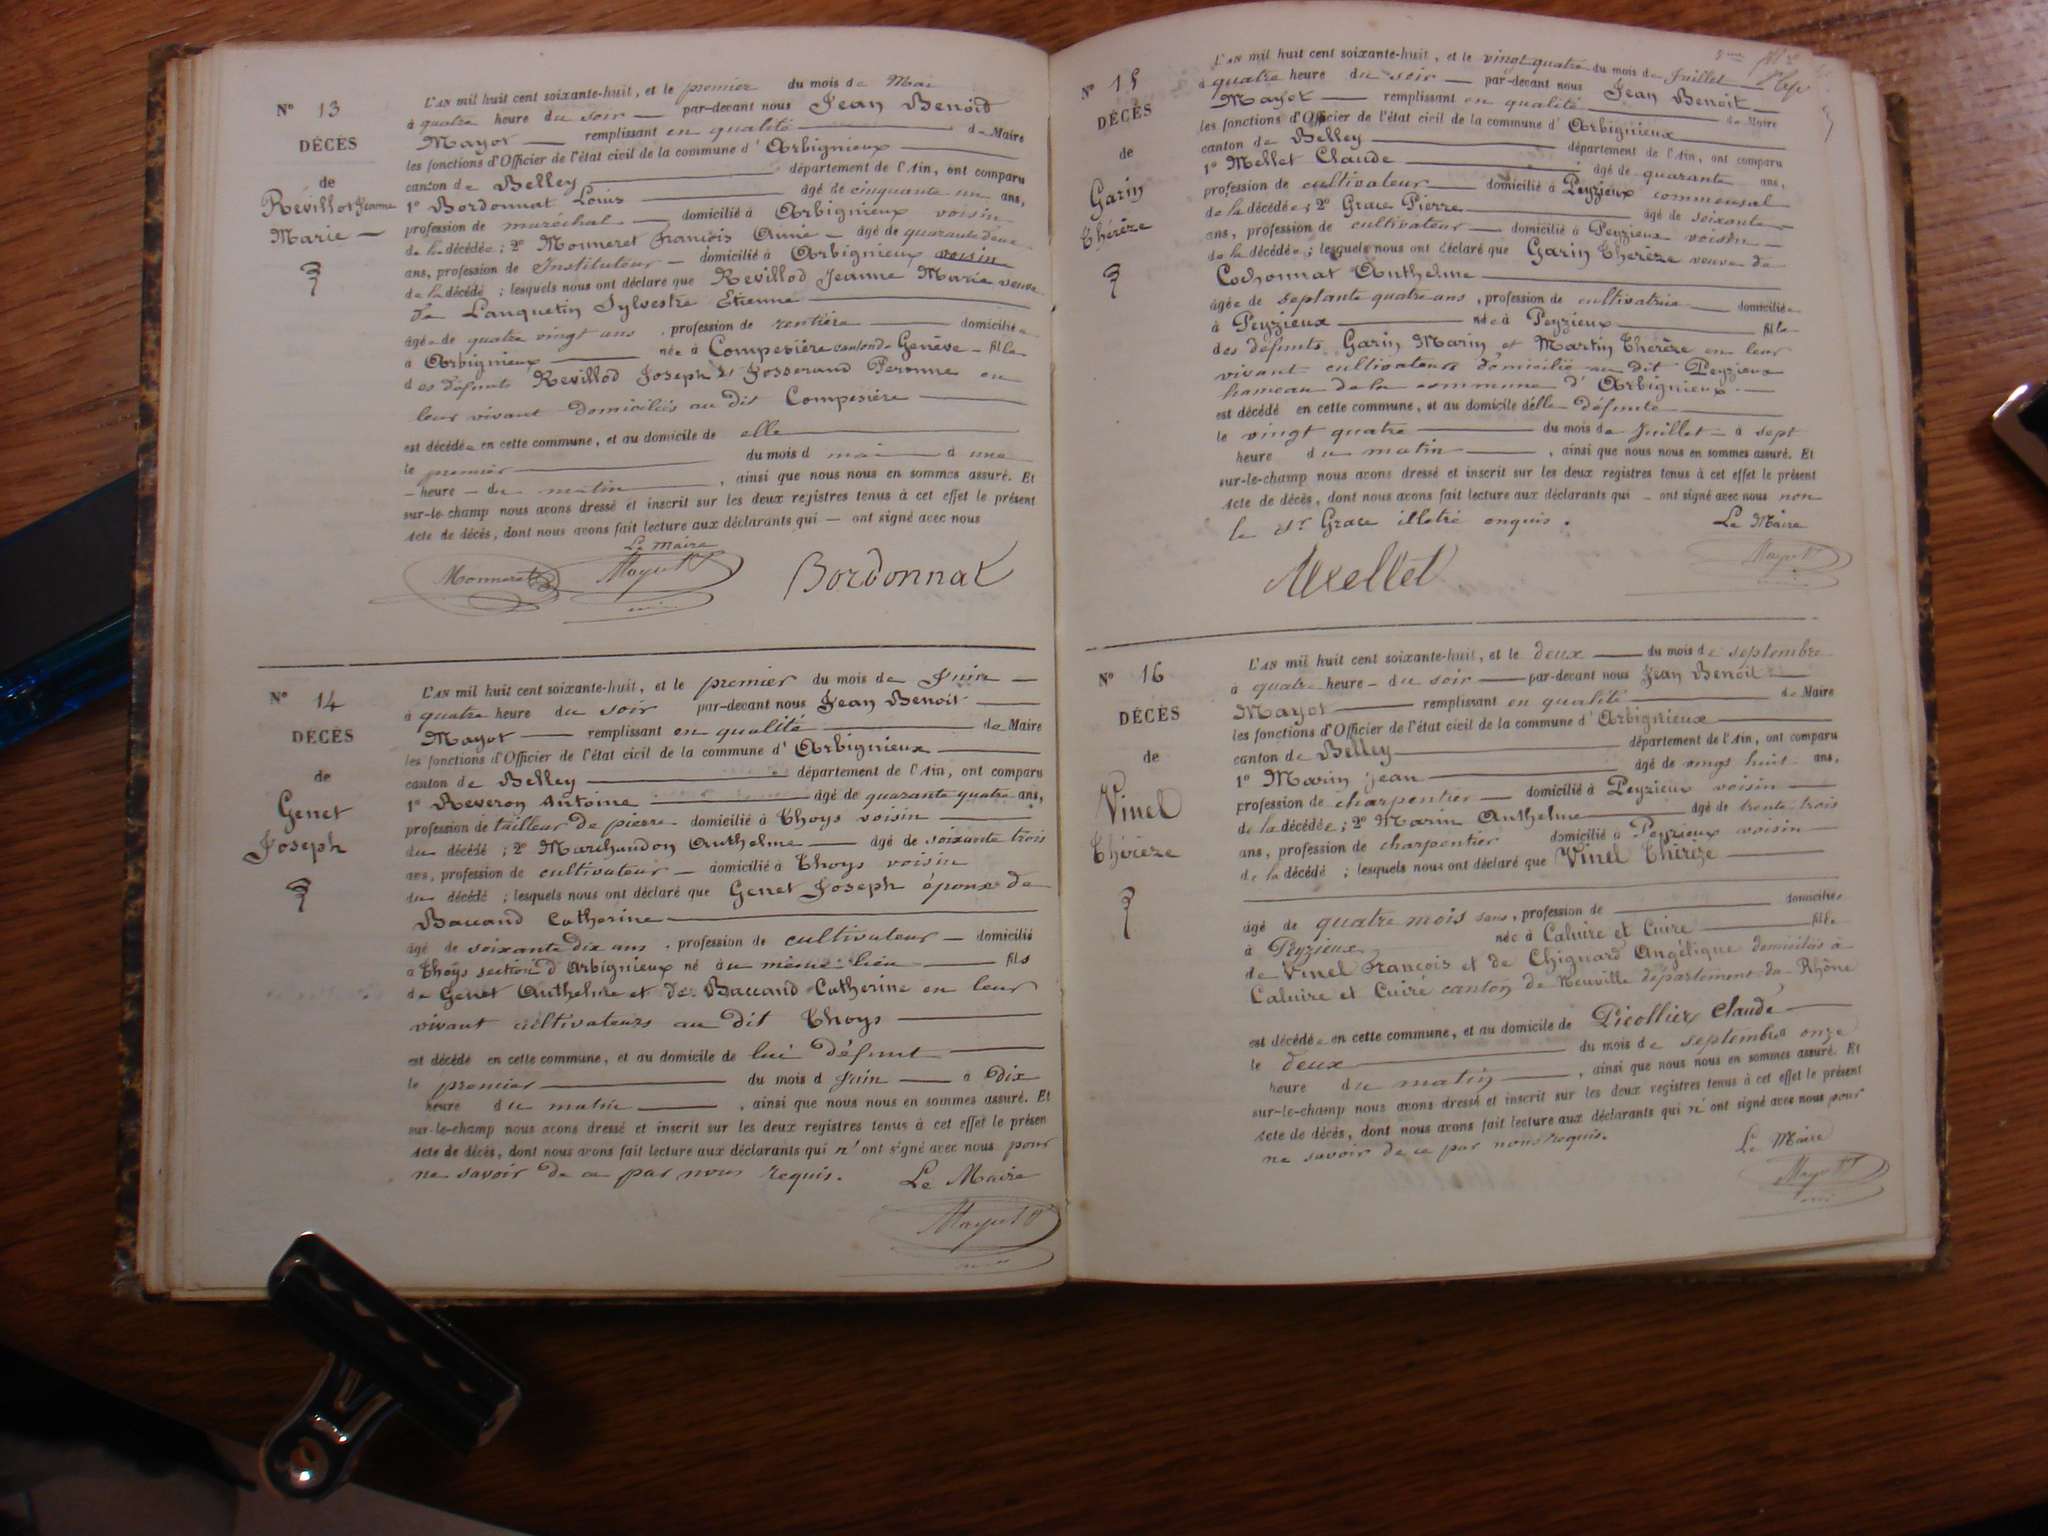 N° 13
DÉCÈS
de
Révillot Jeanne
Marie —
L'AN mil huit cent soixante-huit, et le premier du mois de Mai
à quatre heure du soir — par-devant nous Jean Benoit
Mayot — remplissant en qualité — de Maire
les fonctions d'Officier de l'état civil de la commune d' Arbignieux —
canton de Belley — département de l'Ain, ont comparu
1° Bordonnat Louis — âgé de cinquante un ans,
profession de maréchal — domicilié à Arbignieux voisin
de la décédée ; 2° Monneret François Aimé — âgé de quarante deux
ans, profession de Instituteur — domicilié à Arbignieux voisin
de la décédé ; lesquels nous ont déclaré que Revillod Jeanne Marie veuve
de Lanquetin Sylvestre Etienne —
âgée de quatre vingt ans , profession de rentière — domiciliée
à Arbignieux — née à Compesière canton de Genève — fille
des défunts Revillod Joseph et Josserand Peronne en
leur vivant domiciliés au dit Compesière —
est décédée en cette commune, et au domicile de elle —
le premier — du mois d mai — à une
— heure — du matin — , ainsi que nous nous en sommes assuré. Et
sur-le-champ nous avons dressé et inscrit sur les deux registres tenus à cet effet le présent
acte de décès, dont nous avons fait lecture aux déclarants qui — ont signé avec nous
Le Maire
Monneret Mayot Bordonnat
N° 14
DÉCÈS
de
Genet
Joseph
L'AN mil huit cent soixante-huit, et le premier du mois de Juin —
à quatre heure du soir par-devant nous Jean Benoit —
Mayot — remplissant en qualité — de Maire
les fonctions d'Officier de l'état civil de la commune d' Arbignieux —
canton de Belley — département de l'Ain, ont comparu
1° Reveron Antoine — âgé de quarante quatre ans,
profession de tailleur de pierre domicilié à Thoys voisin —
du décédé ; 2° Marchandon Anthelme — âgé de soixante trois
ans, profession de cultivateur — domicilié à Thoys voisin
du décédé ; lesquels nous ont déclaré que Genet Joseph époux de
Baccand Catherine —
âgé de soixante dix ans , profession de cultivateur — domicilié
à Thoys section d'Arbignieux né au même lieu — fils
de Genet Anthelme et de Baccand Catherine en leur
vivant cultivateurs au dit Thoys —
est décédé en cette commune, et au domicile de lui défunt —
le premier — du mois d Juin — à Dix
heure du matin — , ainsi que nous nous en sommes assuré. Et
sur-le-champ nous avons dressé et inscrit sur les deux registres tenus à cet effet le présen
acte de décès, dont nous avons fait lecture aux déclarants qui n' ont signé avec nous pour
ne savoir de ce par nous requis. Le Maire
Mayot
N° 15
DÉCÈS
de
Garin
Thérèze
L'AN mil huit cent soixante-huit, et le vingt quatre du mois de Juillet —
à quatre heure du soir — par-devant nous Jean Benoit —
Mayot — remplissant en qualité — de Maire
les fonctions d'Officier de l'état civil de la commune d' Arbignieux —
canton de Belley — département de l'Ain, ont comparu
1° Mellet Claude — âgé de quarante ans,
profession de cultivateur — domicilié à Peyzieux commensal
de la décédée ; 2° Grace Pierre — âgé de soixante —
ans, profession de cultivateur — domicilié à Peyzieux voisin —
de la décédée ; lesquels nous ont déclaré que Garin Thérèze veuve de
Cochonnat Anthelme —
âgée de septante quatre ans , profession de cultivatrice — domiciliée
à Peyzieux — née à Peyzieux — fille
des défunts Garin Marin et Martin Thérèze en leur
vivant cultivateurs domicilié au dit Peyzieux
hameau de la commune d' Arbignieux. —
est décédé en cette commune, et au domicile d'elle défunte —
le vingt quatre — du mois de Juillet — à sept
heure du matin — , ainsi que nous nous en sommes assuré. Et
sur-le-champ nous avons dressé et inscrit sur les deux registres tenus à cet effet le présent
acte de décès, dont nous avons fait lecture aux déclarants qui — ont signé avec nous non
le Sr Grace illetré enquis. Le Maire
Mellet Mayot
N° 16
DÉCÈS
de
Vinel
Thérèze
L'AN mil huit cent soixante-huit, et le deux — du mois de septembre
à quatre heure — du soir — par-devant nous Jean Benoit —
Mayot — remplissant en qualité — de Maire
les fonctions d'Officier de l'état civil de la commune d' Arbignieux —
canton de Belley — département de l'Ain, ont comparu
1° Marin Jean — âgé de vingt huit ans,
profession de charpentier — domicilié à Peyzieux voisin —
de la décédée ; 2° Marin Anthelme — âgé de trente trois
ans, profession de charpentier domicilié à Peyzieux voisin —
de la décédé ; lesquels nous ont déclaré que Vinel Thérèze —
âgé de quatre mois sans, profession de — domiciliée
à Peyzieux née à Caluire et Cuire — fille
de Vinel François et de Chignard Angélique domiciliés à
Caluire et Cuire canton de Neuville département du Rhône
est décédée en cette commune, et au domicile de Picollier Claude —
le deux — du mois de septembre onze
heure du matin — , ainsi que nous nous en sommes assuré. Et
sur-le-champ nous avons dressé et inscrit sur les deux registres tenus à cet effet le présent
acte de décès, dont nous avons fait lecture aux déclarants qui n' ont signé avec nous pour
ne savoir de ce par nous requis. Le Maire
Mayot